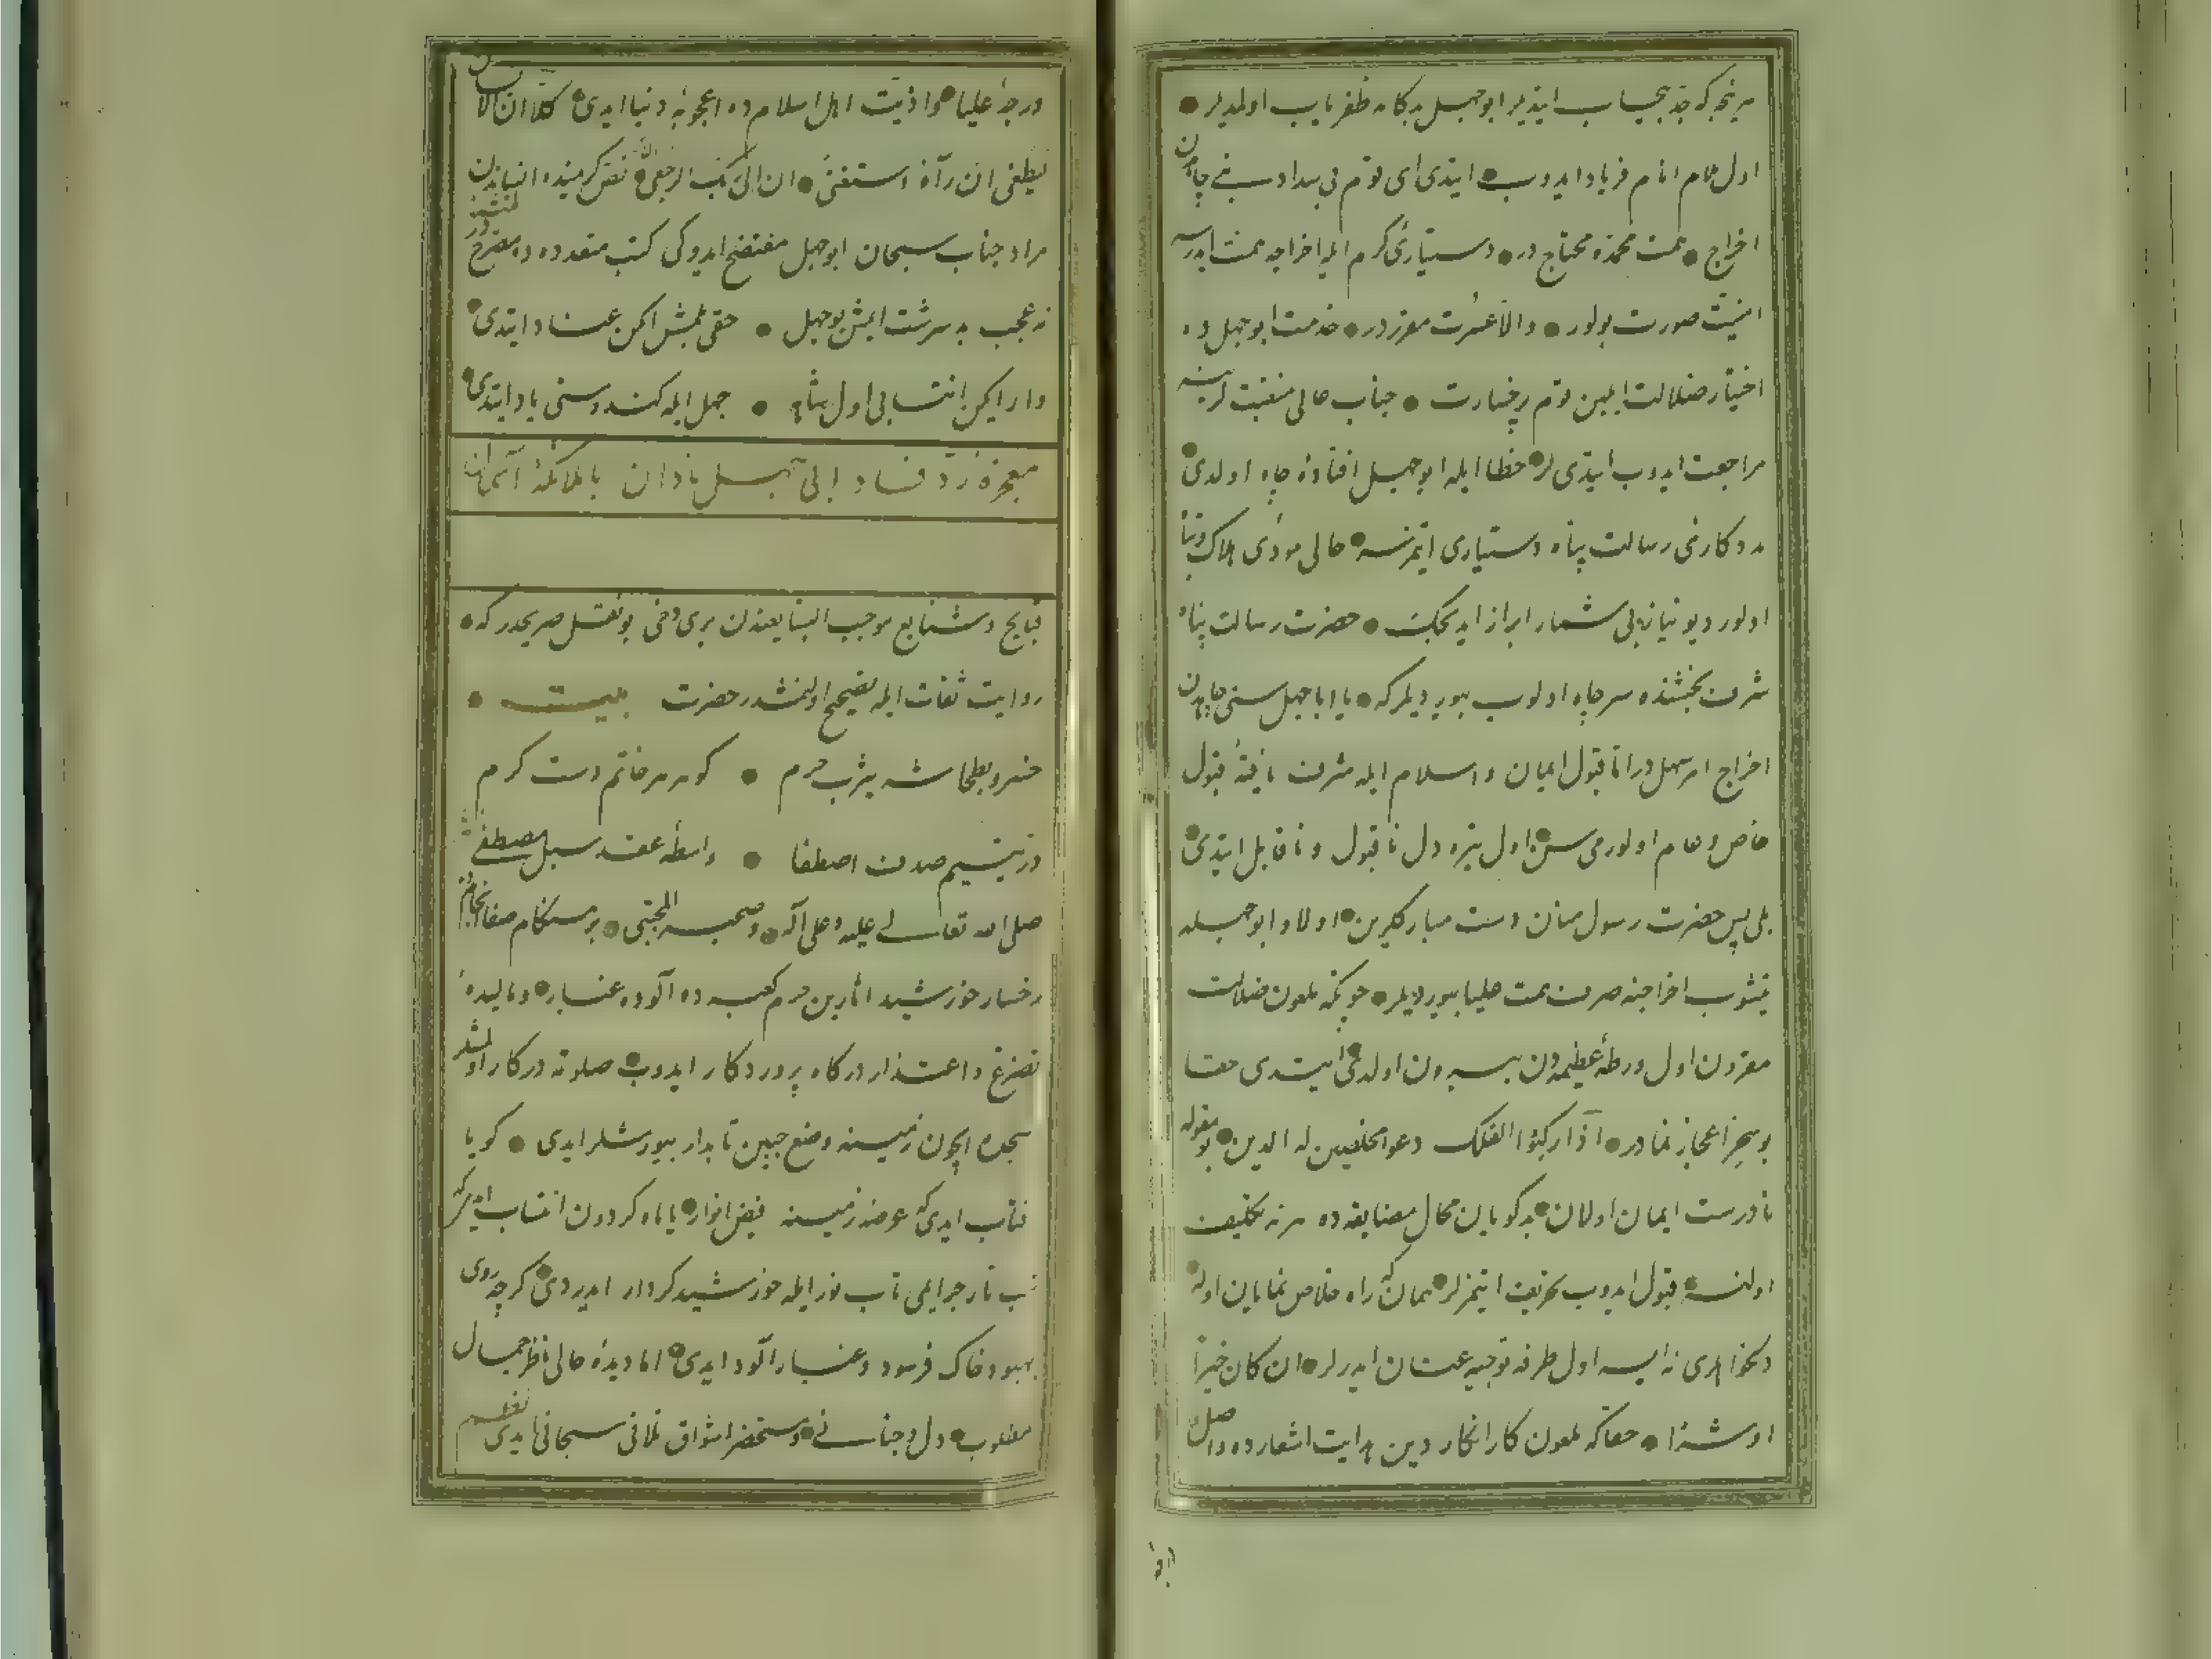 هر نجه که جد بیحساب ایتدیلر ابوجهل بدکامه ظفریاب اولمدیلر
اول لام انام فریاد ایدوب ایتدی ای قوم بی سداد بنی چاهدن
اخراج همت محمده محتاج در دستیارئ کرم ایله اخراجه همت ایدرسه
امنیت صورت بولور والا عسرت مقرر در خدمت ابوجهل ده
اختیار ضلالت ایلین قوم پرخسارت جناب عالی منقبت لرینه
مراجعت ایدوب ایتدی لر خطا ایله ابوجهل افتادهٔ چاه اولدی
مددکارئ رسالت پناه دستیاری ایتمزسه حالی مودئ هلاک وتباه
اولور دیو نیاز بی شمار ابراز ایدیجک حضرت رسالت پناه
شرف بخشنده سر چاه اولوب بیوردیلر که یا ابا جهل سنی چاهدن
اخراج امر سهل در اما قبول ایمان و اسلام ایله شرف یافتهٔ قبول
خاص و عام اولورمی سن اول تیره دل ناقبول و ناقابل ایتدی
بلی پس حضرت رسول منان دست مبارکلرین اولاد ابوجهله
صرف همت علیا بیوردیلر چونکه ملعون ضلالت
مقرون اول ورطهٔ عظیمه دن بیرون اولدی ایتدی حقا
بو سحر اعجاز نما در اذا رکبوا الفلک دعوا مخلصین له الدین بو مقوله
نادرست ایمان اولان بدکویان محال مضایقه ده هر نه تکلیف
اولنسه قبول ایدوب تحریف ایتمزلر همان که راه خلاص نمایان اوله
دلخواهری نه ایسه اول طرفه توجیه عنان ایدرلر ان کان خیرا
اوشرا حقا که ملعون کار انکار دین هدایت اشعارده واصل
درجهٔ علیا و اذیت اهل اسلام ده اعجوبهٔ دنیا ایدی کلا ان الانسان
لیطغی ان رآه استغنی ان الی ربک الرجعی نص کریمنده انساندن
مراد جناب سبحان ابوجهل مفتضح ایدوکی کتب متعدده ده مصرح
نه عجب بد سرشت ایمش بوجهل حقی بلمش ایکن عناد ایتدی
وار ایکن انتسابی اول شاهه جهل ایله کندوسنی یاد ایتدی
معجزهٔ رد فساد ابی جهل نادان با ملائکهٔ آسمان
قبایح و شنایع موجب البشایعندن بری دخی بو نقل صریحدر که
روایت ثقات ایله تصحیح اولنمشدر حضرت بیت
خسرو بطحا شه یثرب حرم کوهر هر خاتم دست کرم
در یتیم صدف اصطفا واسطهٔ عقد سبل مصطفی
صلی الله تعالی علیه و علی آله و صحبه المجتبی بر هنکام صفا انجام
رخسار خورشید اثارین حرم کعبه ده آلوده غبار و مالیدهٔ
تضرع و اعتذار درکاه پروردکار ایدوب صلوته درکار اولمشلر
سجده ایچون زمینه وضع جبین تابدار بیورشلر ایدی کویا
ایدی که عرصهٔ زمینه فیض انوار یا ماه کردون انتساب
تاب نور ایله خورشید کردار ایدردی کرچه روی
بهبود خاک فرسود و غبار آلود ایدی اما دیدهٔ حالی ناظر جمال
مطلوب دل و جنانی و مستحضر اشواق تلاقی سبحانی ایدی نظم